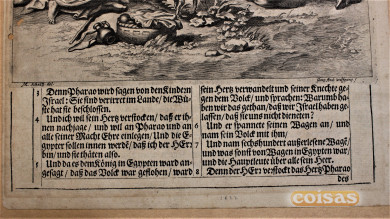 3 Denn Pharao wird sagen von den Kindern
Jsrael: Sie sind verirret im Lande/ die Wü-
ste hat sie beschlossen.
4 Und ich wil sein Hertz verstocken/ daß er ih-
nen nachjage/ und wil an Pharao und an
alle seiner Macht Ehre einlegen/ Und die E-
gypter sollen innen werdē/ daß ich der HErr
bin/ und sie thäten also.
5 Und da es dem König in Egypten ward an-
gesagt/ daß das Volck war geflohen/ ward
sein Hertz verwandelt und seiner Knechte ge-
gen dem Volck/ und sprachen: Warumb ha-
ben wir das gethan/ daß wir Jsrael haben ge-
lassen/ daß sie uns nicht dieneten?
6 Und er spannete seinen Wagen an/ und
nam sein Volck mit ihm/
7 Und nam sechshundert außerlesene Wagē/
und was sonst von Wagen in Egypten war/
und die Hauptleute über alle sein Heer.
8 Denn der HErr verstockt das Hertz Pharao
des
coisas